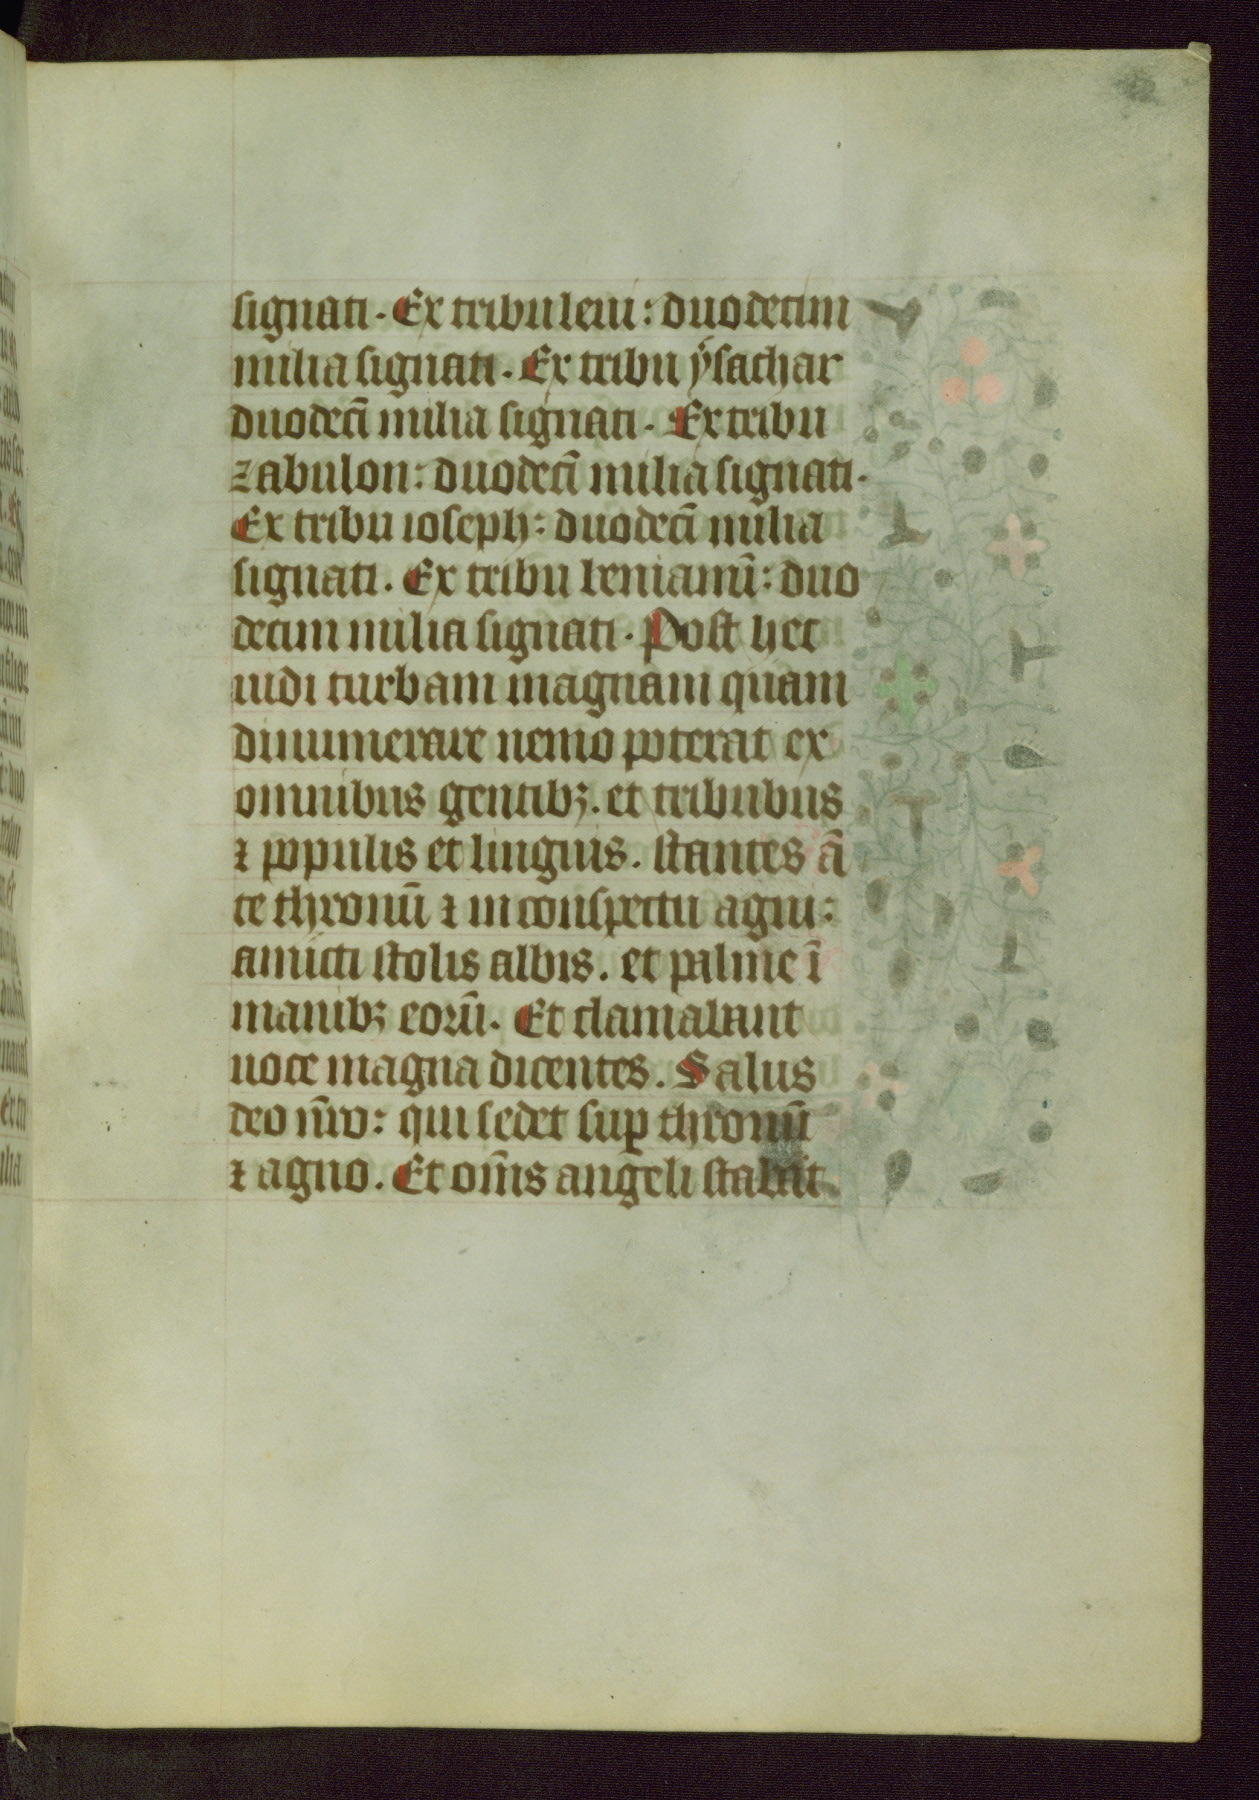 signati. Ex tribu leui: duodecim
milia signati. Ex tribu ẏsachar
duodecī milia signati. Ex tribu
zabulon: duodecī milia signati.
Ex tribu ioseph: duodecī milia
signati. Ex tribu beniamī: duo
decim milia signati. Post hec
uidi turbam magnam quam
dinumerare nemo poterat ex
omnibus gentibꝫ. et tribubus
⁊ populis et linguis. stantes ā
te thronū ⁊ in conspectu agni:
amicti stolis albis. et palme ī
manibꝫ eorū. Et clamabant
uoce magna dicentes. Salus
deo nr̄o: qui sedet suꝑ thronū
⁊ agno. Et om̄s angeli stabāt